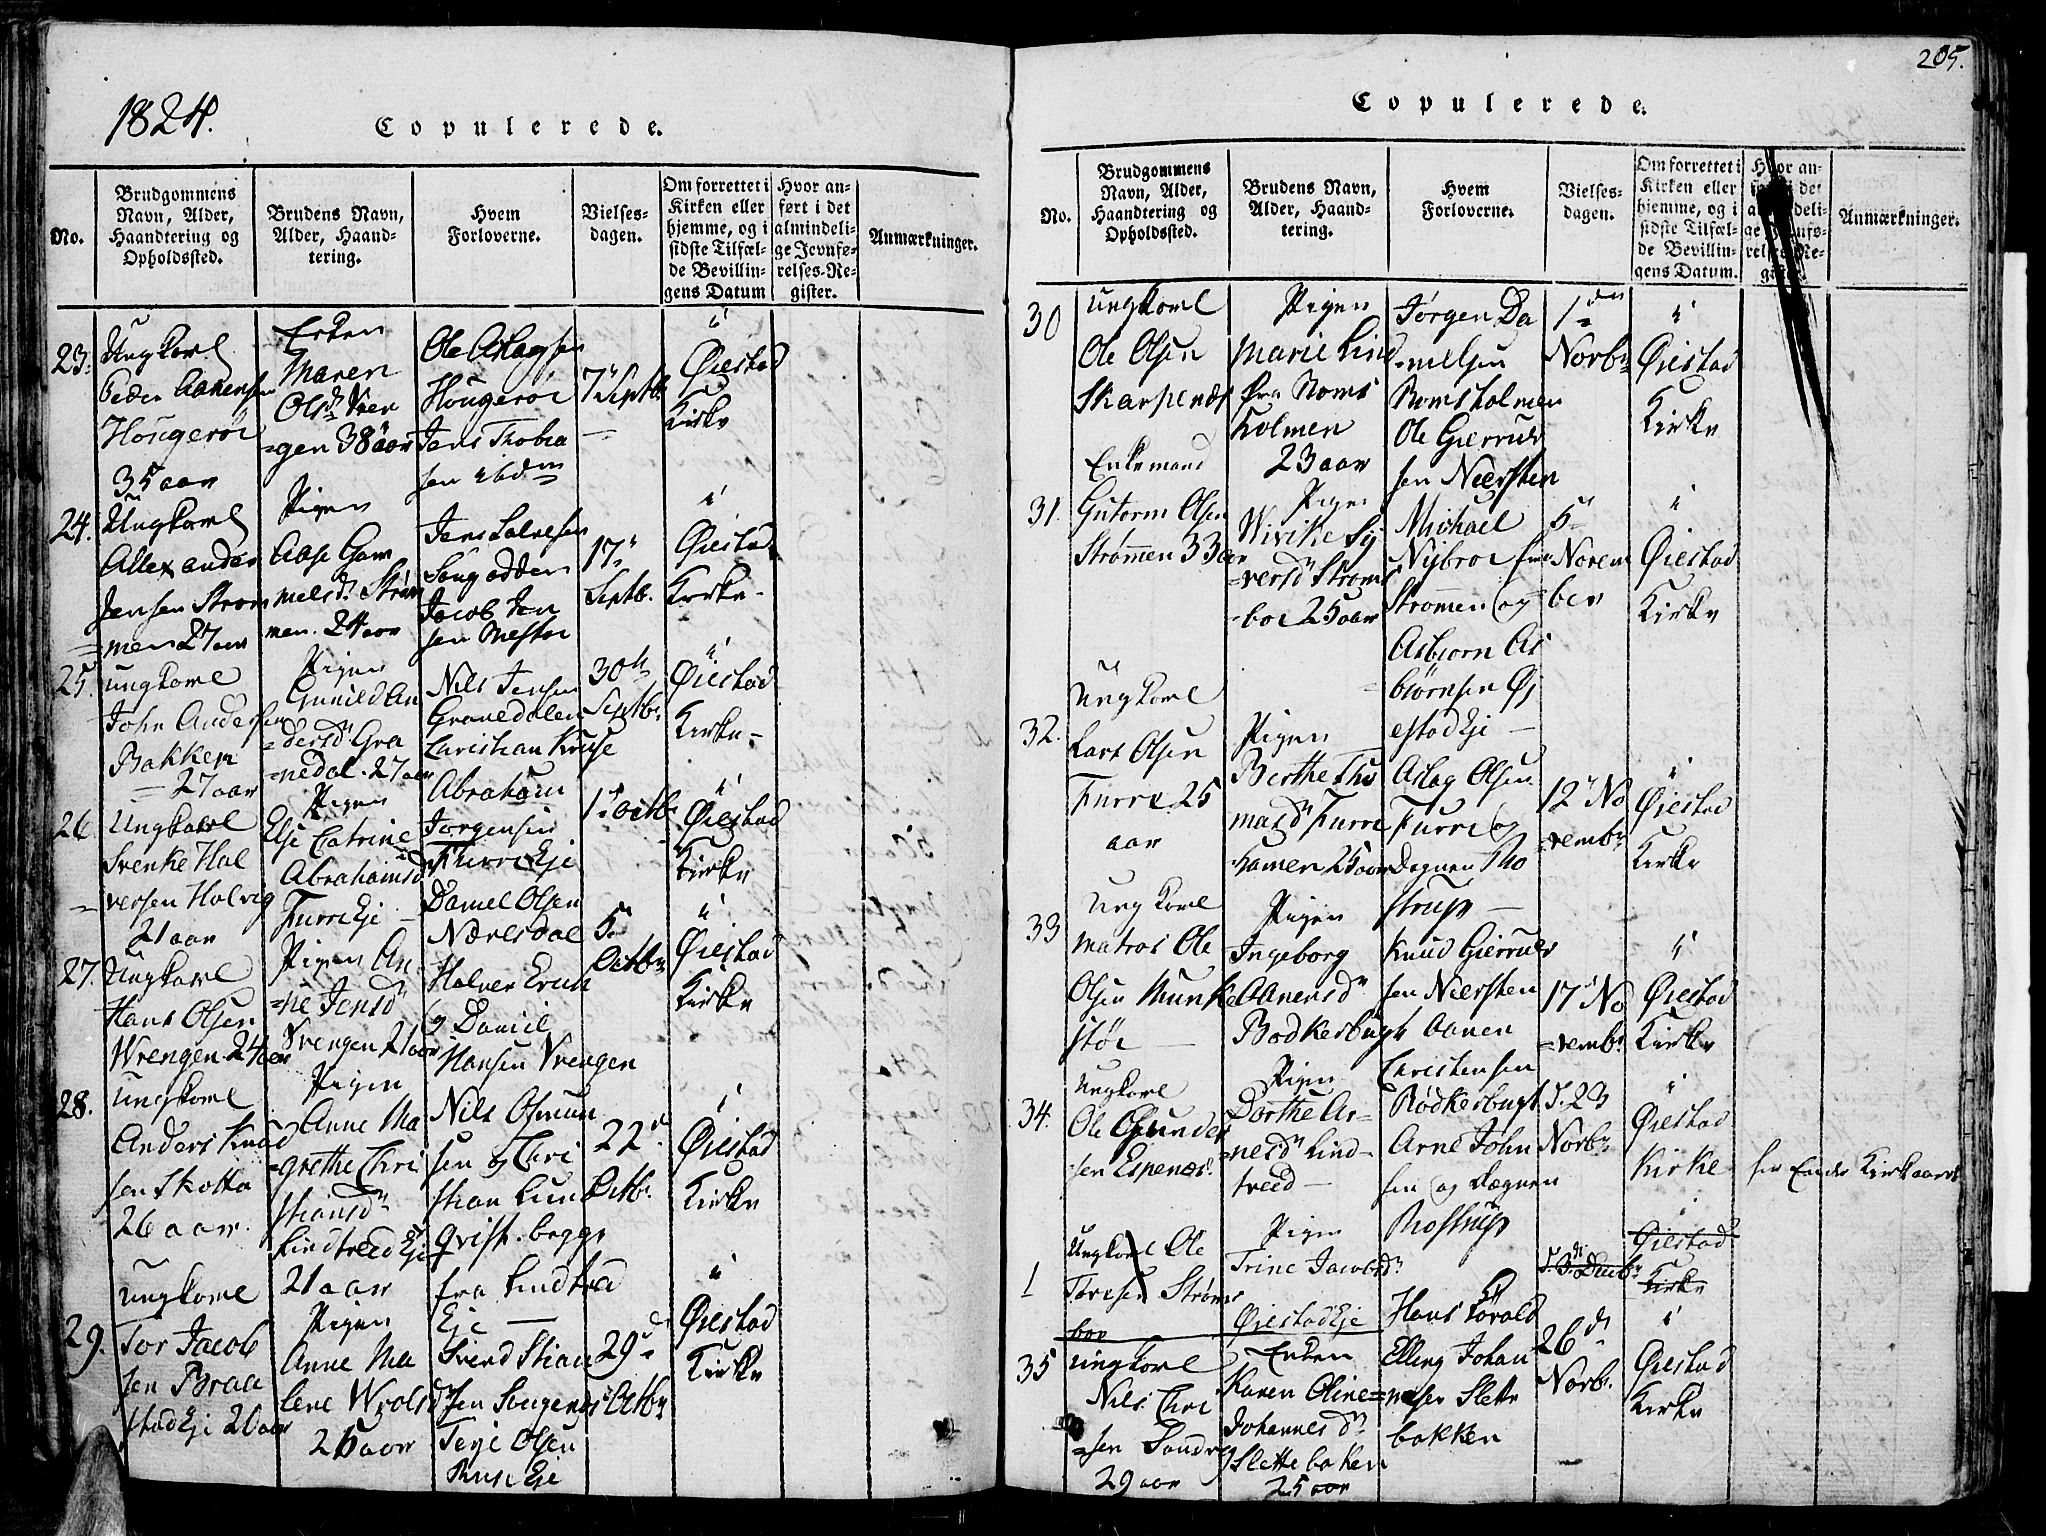 1824.
Copulerede.
No.
Brudgommens Navn, Alder, Haandtering og Opholdssted.
Brudens Navn, Alder, Haandtering.
Hvem Forloverne.
Vielsesdagen.
Om forrettet i Kirken eller hjemme, og i sidste Tilfælde Bevillingens Datum
Hvor anført i det almindelige Jevnførelses-Register.
Anmærkninger.
23.
Ungkarl
Peder Aanensen
Hougerøe
35 aar
Enken
Maren
Olsd. Vren
=gen 38 aar
Ole Aslagsen
Hougerøe
Jens Thobia
sen ibdm
7 Septb.
Øiestad
Kirke
24.
Ungkarl
Allexander
Jensen Strøm
=men 27 aar
Pigen
Aase Gam
melsd. Strøm
men. 24 aar
Jens Salvesen
Songodden
Jacob Jen
sen
17
Septb.
Øiestad
Kirke
25.
ungkarl
John Andersen
Bakken
27 aar
Pigen
Gunild An
=dersd. Gra
=nedal. 27 aar
Nils Jensen
Granedalen
Christian Kruse
30
Septbr
Øiestad
Kirke
26.
Ungkarl
Svenke Hal
versen Holvig
21 aar
Pigen
Else Catrine
Abrahamsd
Furre Eje
Abraham
Jørgensen
Furre Eje
Daniel Olsen
Nærlsdal
1 Octb
Øiestad
Kirke
27.
Ungkarl
Hans Olsen
Wrengen 24 aar
Pigen An
=ne Jensd
Vrengen 21 aar
Halver Erich
og Daniel
Hansen Vrengen
5
Octbr
Øiestad
Kirke
28.
Ungkarl
Anders Knud
sen Skotta
26 aar.
Pigen
Anne Ma
=grethe Chri
stiansd
Lindtveed Eje
21 aar
Nils Osmun
sen og Chri
stian Lun
qvist. begge
fra Lindtved
Eje
22
Octbr.
Øiestad
Kirke
29.
Ungkarl
Tor Jacob
sen Braa
stad Eje 26 aar
Pigen
Anne Ma
lene Wrolsd
26 aar
Svend Stian
sen Songe
Terje Olsen
Eje
29
Octbr
Øiestad
Kirke
205.
Copulerede.
No.
Brudgommens Navn, Alder, Haandtering og Opholdssted.
Brudens Navn, Alder, Haandtering.
Hvem Forloverne.
Vielsesdagen.
Om forrettet i Kirken eller hjemme, og i sidste Tilfælde Bevillingens Datum.
Anmærkninger.
30
Ungkarl
Ole Olsen
Skarpenes
Pigen
Marie Lind
fra Roms
holmen
23 aar
Jørgen Da
=nielsen
Romsholmen
Ole Gierruls
sen Niersten
1
Novbr
Øiestad
Kirke
31.
Enkemand
Gutorm Olsen
Strømmen 33 aar
Pigen
Wivike Sy
=versd Stroms
=boe 25 aar
Michael
Nybroe fra
Strømmen og
Asbjorn As
biörnsen Øj
estad Eje
5
Novem
ber
Øiestad
Kirke
32.
Ungkarl
Lars Olsen
Furre 25
aar
Pigen
Berthe Tho
masd Furre
hamer 25 aar
Aslag Olsen
Furre og
Degnen Rho
strup
12 No
=vembr
Øiestad
Kirke
33
Ungkarl
Matros Ole
Olsen Munke
støe
Pigen
Ingeborg
Aanensd
Bodkerbugt
Knud Gierruls
sen Niersten
Aanen
Christensen
Rødkerbugt
17 No
=vembr
Øiestad
Kirke
34.
Ungkarl
Ole Osmunde
sen Espenæs.
Pigen
Dorthe Ar
=nesd Lind
tveed
Arne John
sen og Dægnen
Rostrup
d. 23
Novbr
Øiestad
Kirke
Ungkarl Ole
Tøresen Strøms
boe
Pigen
Trine Jacobsd
Øiestad Eje
d. 3 Decbr
Øiestad
Kirke
35
Ungkarl
Nils Chri
=sen Sandvig
29 aar
Enken
Karen Oline
Johannesd
Slettebaken
25 aar
Hans
Elling Johan
=nesen Slette
bakken
26
Novbr.
Øiestad
Kirke